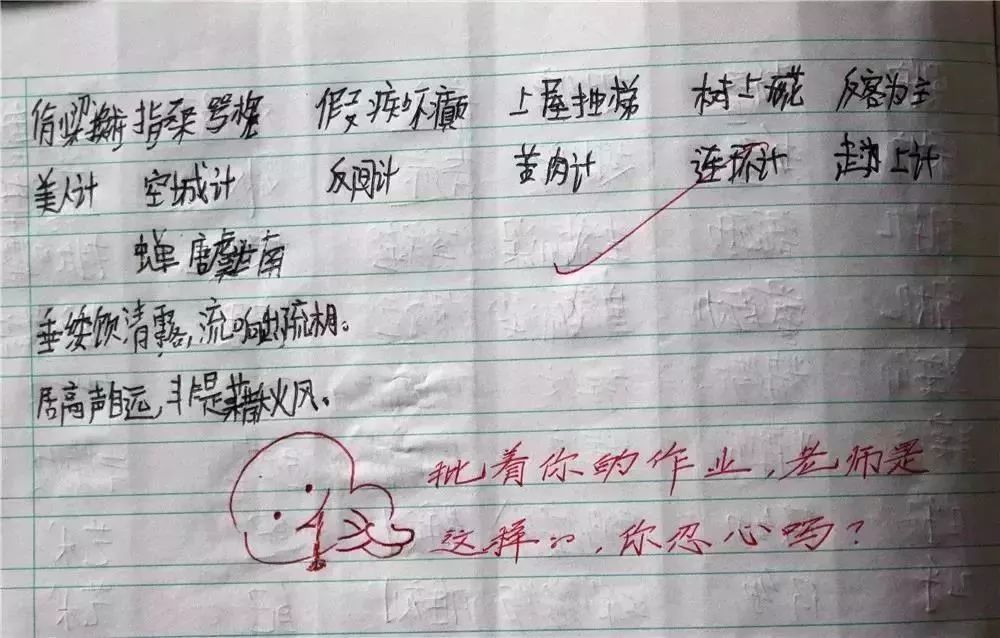 偷梁换柱 指桑骂槐 假疾不癫 上屋抽梯 树上开花 反客为主
美人计 空城计 反间计 苦肉计 连环计 走为上计
蝉 唐 虞世南
垂绥饮清露,流响出疏桐。
居高声自远,非是藉秋风。
批着你的作业,老师是
这样的,你忍心吗?